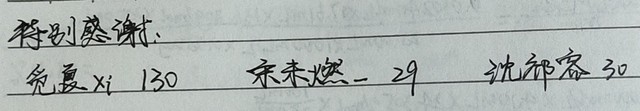 特别感谢:
免夏xi 130 余未燃_ 29 沈祁容 30